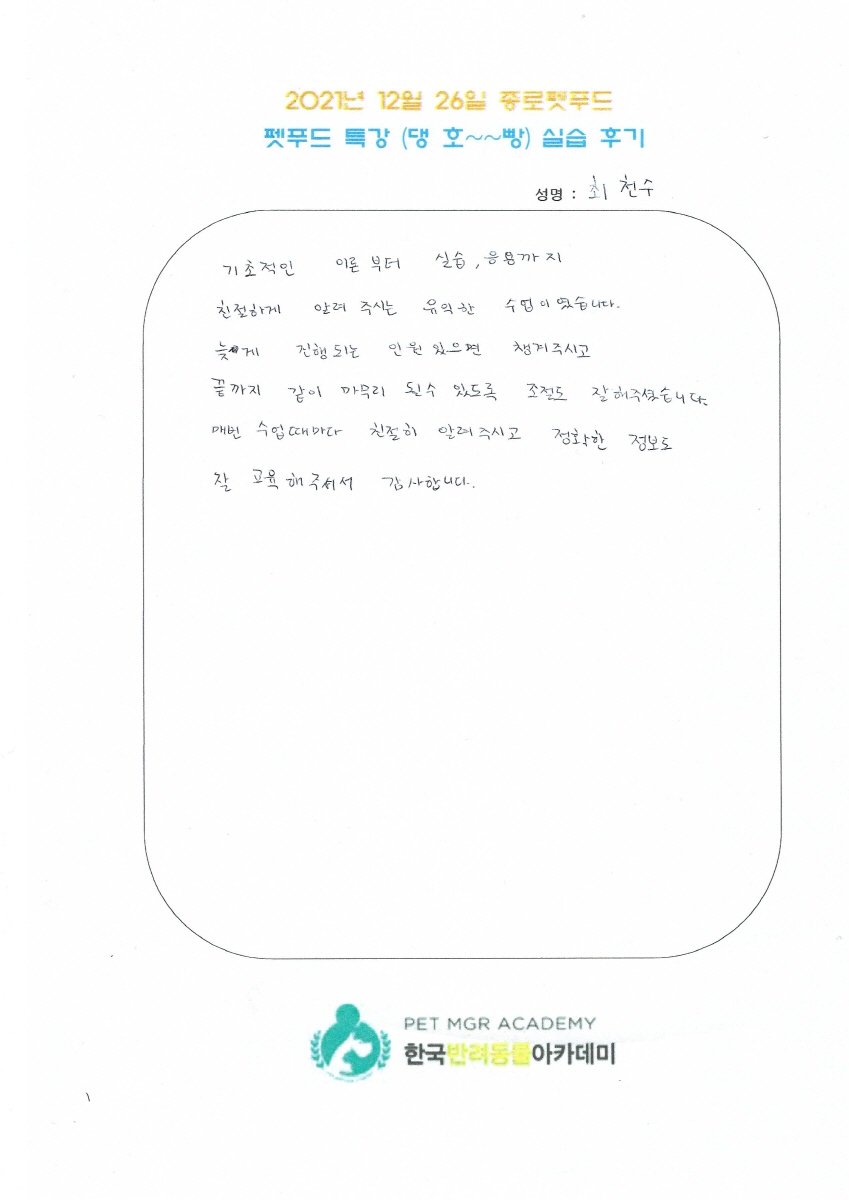 2021년 12월 26일 종로펫푸드
펫푸드 특강 (댕 호~~빵) 실습 후기
성명 : 최천수
기초적인 이론부터 실습, 응용까지
친절하게 알려 주시는 유익한 수업이였습니다.
늦게 진행되는 인원 있으면 챙겨주시고
끝까지 같이 마무리 될수 있도록 조절도 잘해주셨습니다.
매번 수업때마다 친절히 알려주시고 정확한 정보도
잘 교육해주셔서 감사합니다.
PET MGR ACADEMY
한국반려동물아카데미